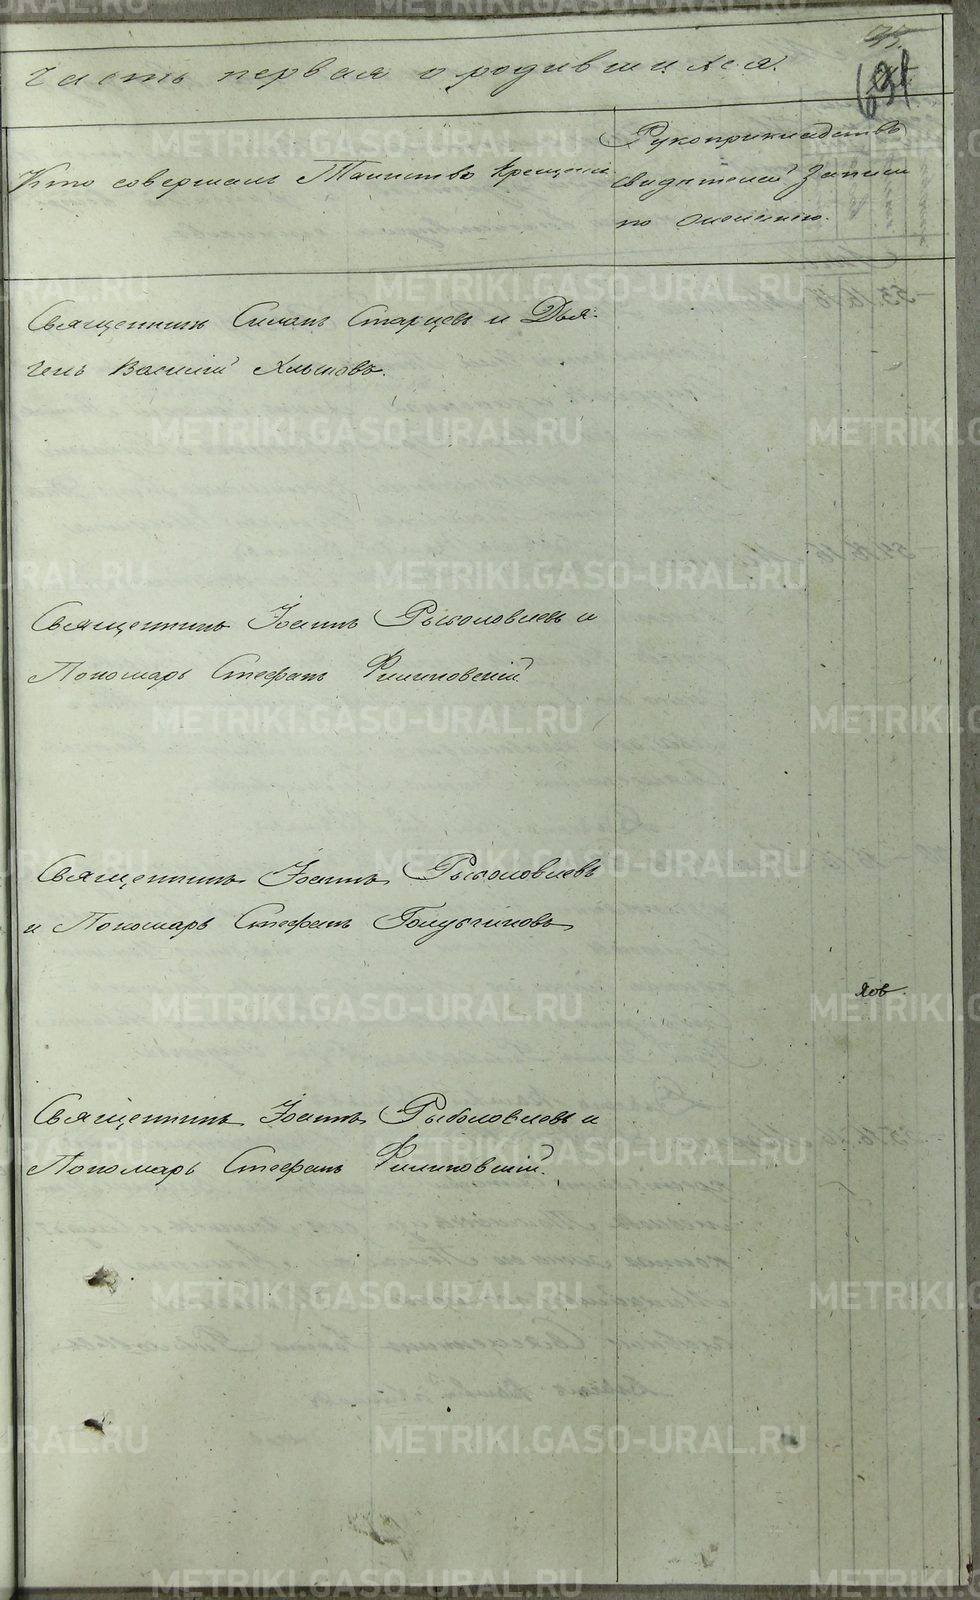 Часть первая о родившихся.
Кто совершалъ Таинство Крещенія
Рукоприкладство
свидѣтелей записи
по желанію.
Священникъ Симонъ Старцевъ и Дья-
чекъ Василій Хлыновъ.
Священникъ Іоаннъ Рыболовлевъ и
Пономарь Стефанъ Филиповскій
Священникъ Іоаннъ Рыболовлевъ
и Пономарь Стефанъ Голубчиковъ
Священникъ Іоаннъ Рыболовлевъ и
Пономарь Стефанъ Филиповскій.
METRIKI.GASO-URAL.RU